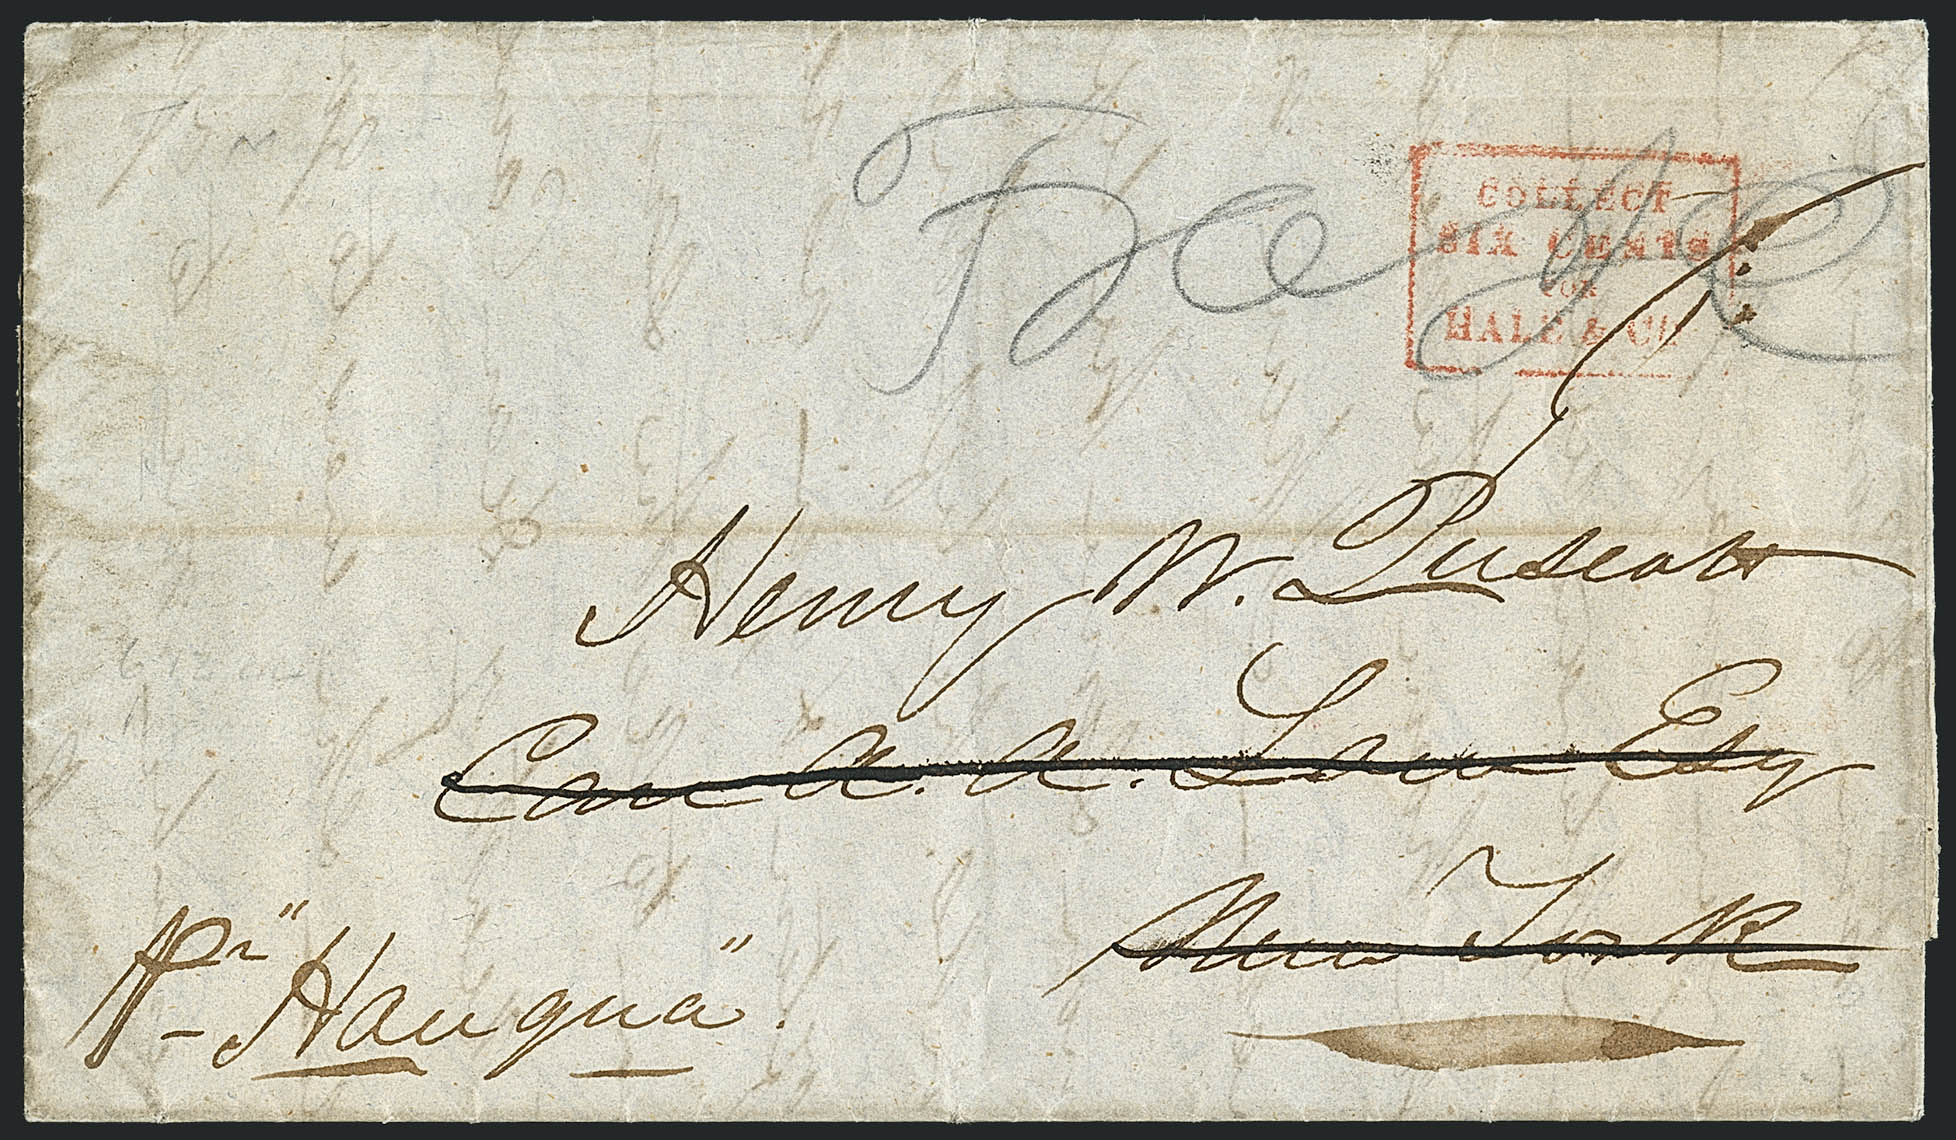 COLLECT
SIX CENTS
FOR
HALE & Co.
Henry W.
Care A. A. Low Esq
New York
Pr "Houqua".